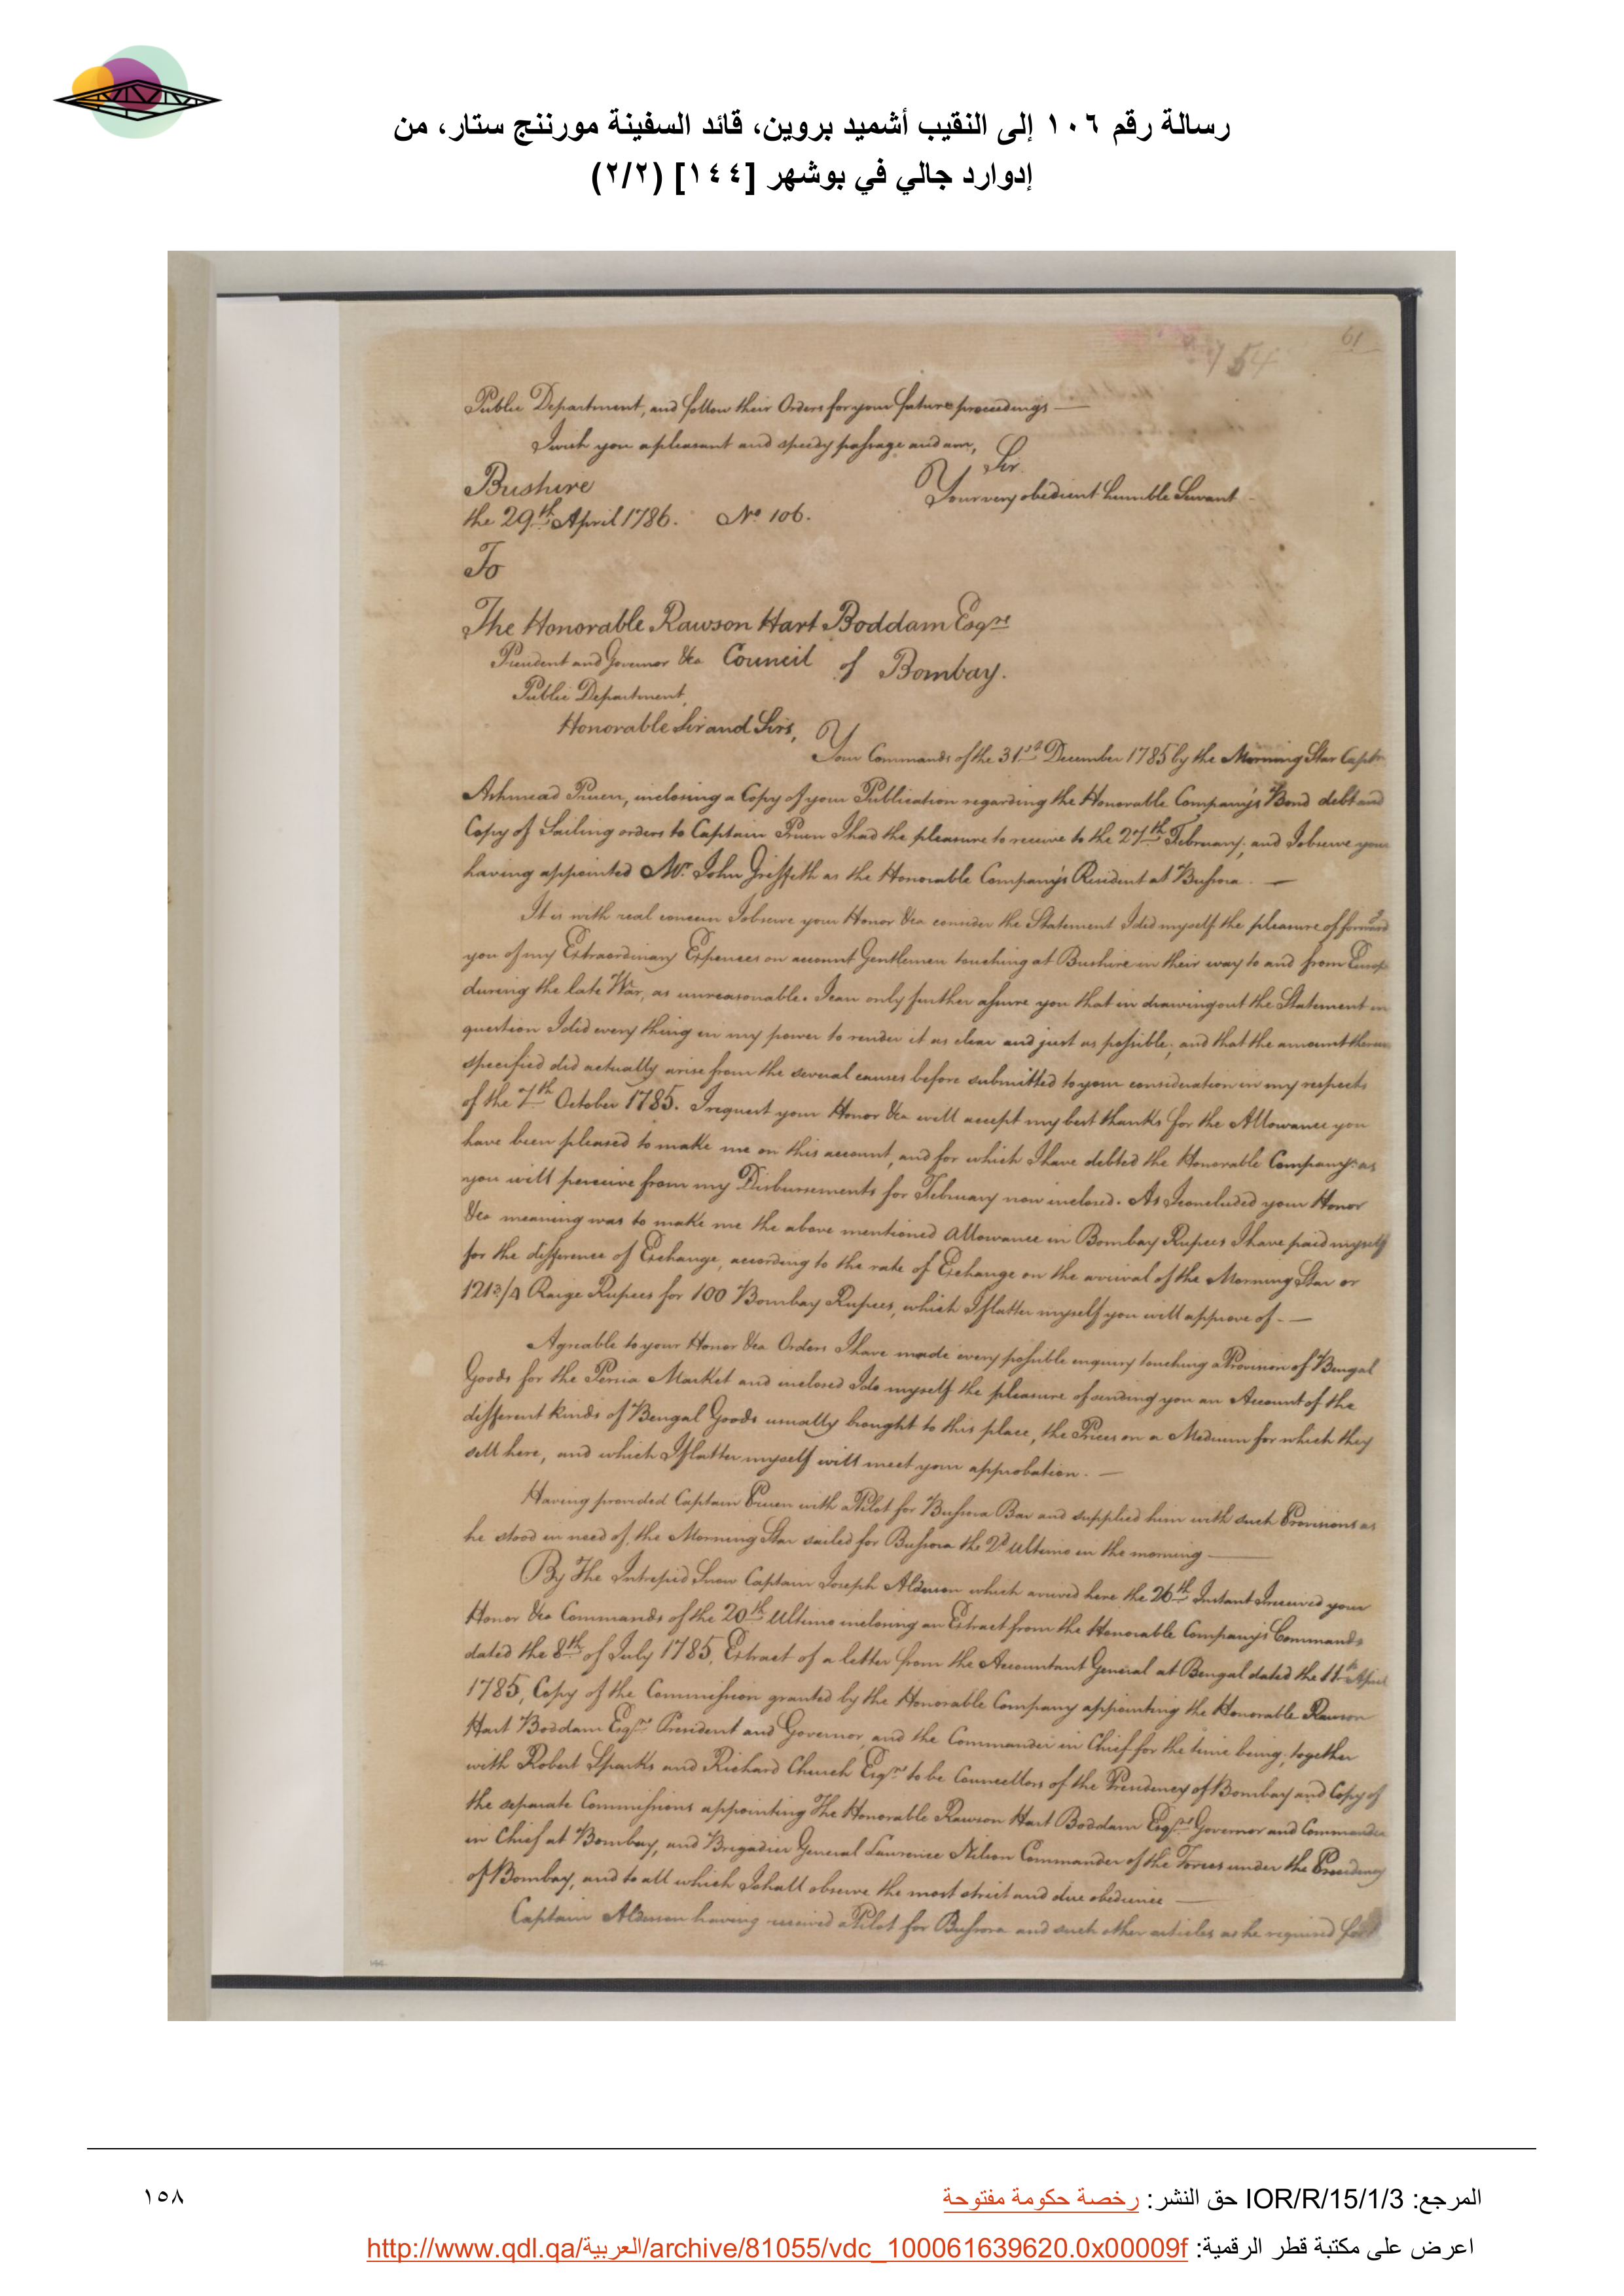 رسالة رقم ١٠٦ إلى النقيب أشميد بروين، قائد السفينة مورننج ستار، من
إدوارد جالي في بوشهر [١٤٤] (٢/٢)
61
54
Public Department, and follow their Orders for your future proceedings —
I wish you a pleasant and speedy passage and am,
Sir
Bushire
Your very obedient humble Servant
the 29th April 1786. No 106.
To
The Honorable Rawson Hart Boddam Esqre
President and Governor &ca Council of Bombay.
Public Department
Honorable Sir and Sirs,
Your Commands of the 31st December 1785 by the Morning Star Captn
Ashmead Pruen, inclosing a Copy of your Publication regarding the Honorable Company's Bond debt and
Copy of Sailing orders to Captain Pruen I had the pleasure to receive to the 27th February; and I observe your
having appointed Mr. John Griffith as the Honorable Company's Resident at Bussora. —
It is with real concern I observe your Honor &ca consider the Statement I did myself the pleasure of forward
you of my Extraordinary Expences on account Gentlemen touching at Bushire in their way to and from Europe
during the late War, as unreasonable. I can only further assure you that in drawing out the Statement in
question I did every thing in my power to render it as clear and just as possible; and that the amount therein
specified did actually arise from the several causes before submitted to your consideration in my respects
of the 7th October 1785. I request your Honor &ca will accept my best thanks for the Allowance you
have been pleased to make me on this account, and for which I have debted the Honorable Company as
you will perceive from my Disbursements for February now inclosed. As I concluded your Honor
&ca meaning was to make me the above mentioned Allowance in Bombay Rupees I have paid myself
for the difference of Exchange, according to the rate of Exchange on the arrival of the Morning Star or
121 3/4 Raige Rupees for 100 Bombay Rupees, which I flatter myself you will approve of. —
Agreable to your Honor &ca Orders I have made every possible enquiry touching a Provision of Bengal
Goods for the Persia Market and inclosed I do myself the pleasure of sending you an Account of the
different kinds of Bengal Goods usually brought to this place, the Prices on a Medium for which they
sell here, and which I flatter myself will meet your approbation. —
Having provided Captain Pruen with a Pilot for Bussora Bar and supplied him with such Provisions as
he stood in need of, the Morning Star sailed for Bussora the 2d Ultimo in the morning —
By The Intrepid Snow Captain Joseph Alderson which arrived here the 26th Instant I received your
Honor &ca Commands of the 20th Ultimo inclosing an Extract from the Honorable Company's Commands
dated the 8th of July 1785, Extract of a letter from the Accountant General at Bengal dated the 11th April
1785, Copy of the Commission granted by the Honorable Company appointing the Honorable Rawson
Hart Boddam Esqre President and Governor, and the Commander in Chief for the time being, together
with Robert Sparks and Richard Church Esqrs to be Councellors of the Presidency of Bombay and Copy of
the separate Commissions appointing The Honorable Rawson Hart Boddam Esqre Governor and Commander
in Chief at Bombay, and Brigadier General Lawrence Nilson Commander of the Forces under the Presidency
of Bombay, and to all which I shall observe the most strict and due obedience —
Captain Alderson having received a Pilot for Bussora and such other articles as he required for
المرجع: IOR/R/15/1/3 حق النشر: رخصة حكومة مفتوحة
١٥٨
اعرض على مكتبة قطر الرقمية: http://www.qdl.qa/العربية/archive/81055/vdc_100061639620.0x00009f